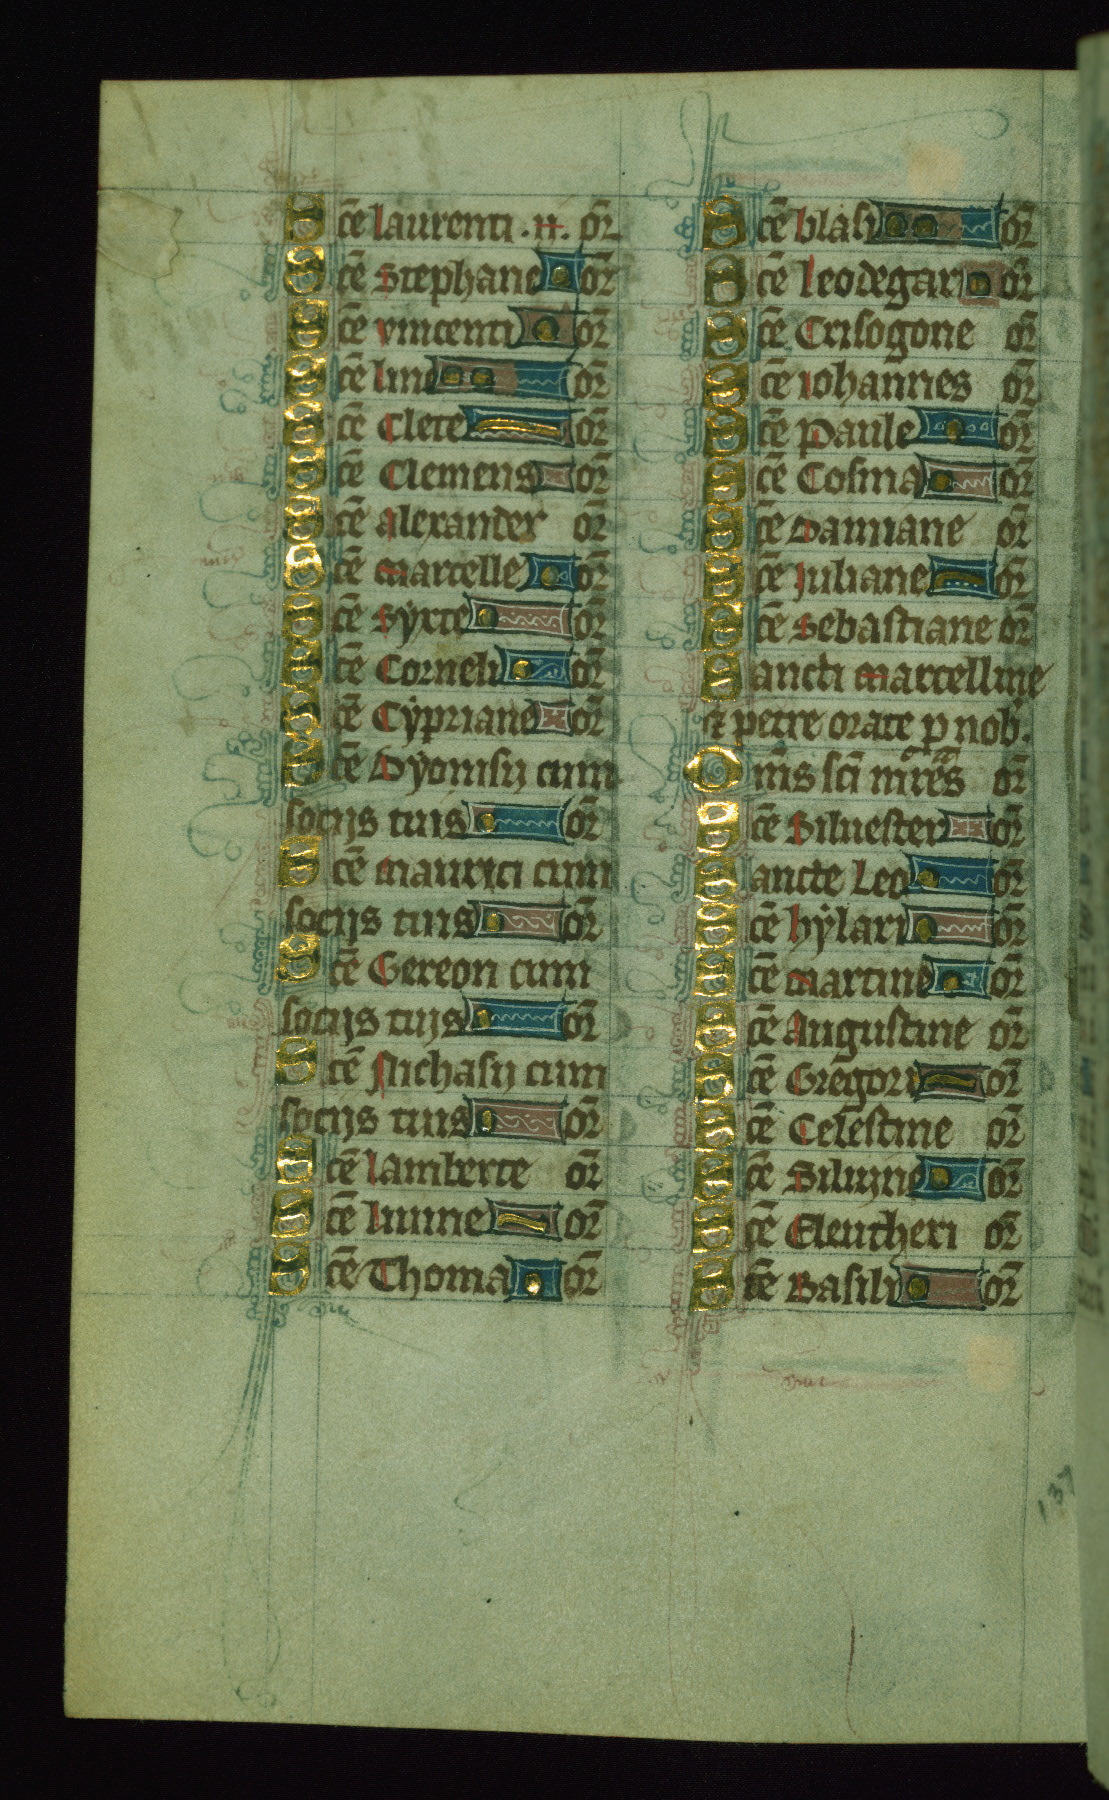 Scē laurenti .ii. or̄
Scē stephane or̄
Scē vincenti or̄
Scē line or̄
Scē Clete or̄
Scē Clemens or̄
Scē alexander or̄
Scē marcelle or̄
Scē syxte or̄
Scē Corneli or̄
Scē Cypriane or̄
Scē Dyonisij cum
socijs tuis or̄
Scē maurici cum
socijs tuis or̄
Scē Gereon cum
socijs tuijs or̄
Scē Nichasij cum
socijs tuis or̄
Scē lamberte or̄
Scē liuine or̄
Scē Thoma or̄
Scē blasi or̄
Scē leodegari or̄
Scē Crisogone or̄
Scē iohannes or̄
Scē Paule or̄
Scē Cosma or̄
Scē Damiane or̄
Scē Iuliane or̄
Scē sebastiane or̄
Sancti marcelline
et petre orate p nob.
Om̄s sc̄i mr̄es or̄
Scē Siluester or̄
Sancte Leo or̄
Scē hylari or̄
Scē martine or̄
Scē Augustine or̄
Scē Gregori or̄
Scē Celestine or̄
Scē Siluine or̄
Scē Eleutheri or̄
Scē Basili or̄
137